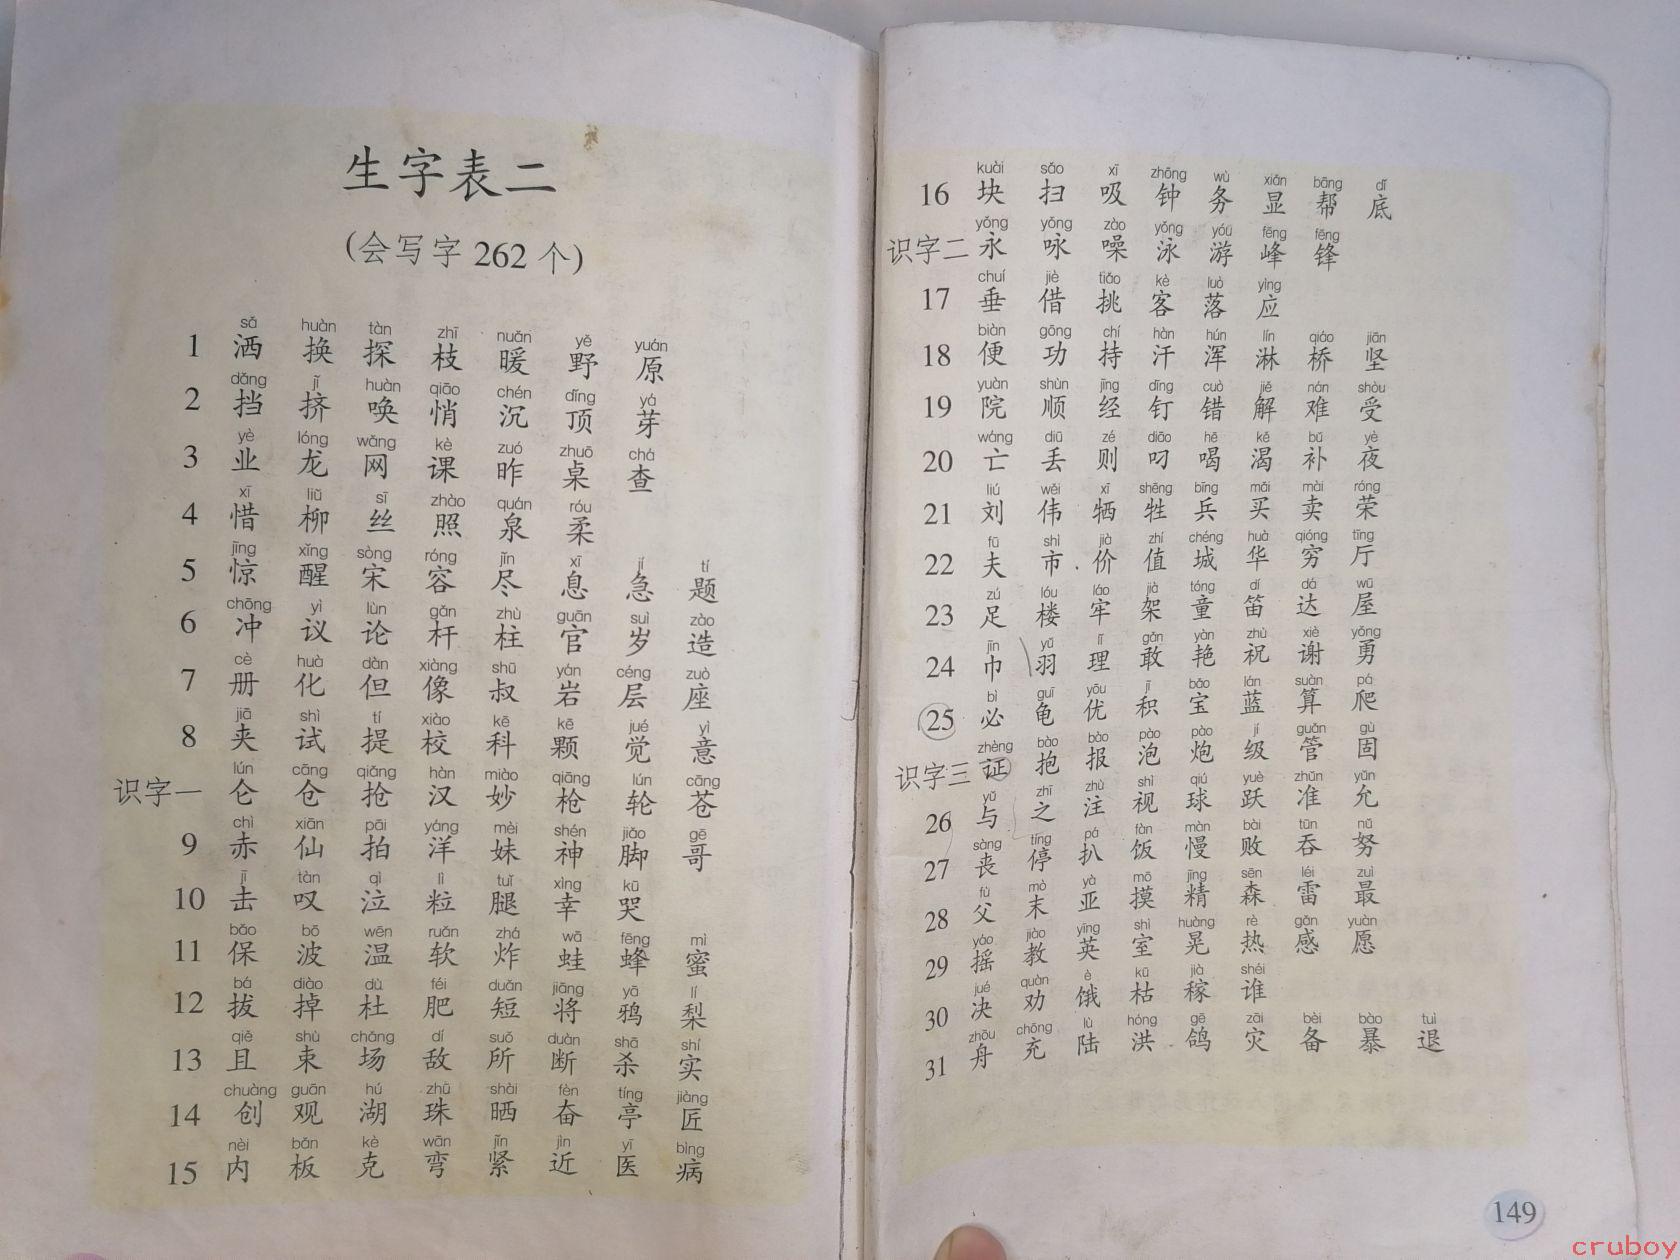 生字表二
(会写字262个)
sǎ huàn tàn zhī nuǎn yě yuán
1 洒 换 探 枝 暖 野 原
dǎng jǐ huàn qiāo chén dǐng yá
2 挡 挤 唤 悄 沉 顶 芽
yè lóng wǎng kè zuó zhuō chá
3 业 龙 网 课 昨 桌 查
xī liǔ sī zhào quán róu
4 惜 柳 丝 照 泉 柔
jīng xǐng sòng róng jǐn xī jí tí
5 惊 醒 宋 容 尽 息 急 题
chōng yì lùn gǎn zhù guān suì zào
6 冲 议 论 杆 柱 官 岁 造
cè huà dàn xiàng shū yán céng zuò
7 册 化 但 像 叔 岩 层 座
jiā shì tí xiào kē kē jué yì
8 夹 试 提 校 科 颗 觉 意
lún cāng qiǎng hàn miào qiāng lún cāng
识字一 仑 仓 抢 汉 妙 枪 轮 苍
chì xiān pāi yáng mèi shén jiǎo gē
9 赤 仙 拍 洋 妹 神 脚 哥
jī tàn qì lì tuǐ xìng kū
10 击 叹 泣 粒 腿 幸 哭
bǎo bō wēn ruǎn zhá wā fēng mì
11 保 波 温 软 炸 蛙 蜂 蜜
bá diào dù féi duǎn jiāng yā lí
12 拔 掉 杜 肥 短 将 鸦 梨
qiě shù chǎng dí suǒ duàn shā shí
13 且 束 场 敌 所 断 杀 实
chuàng guān hú zhū shài fèn tíng jiàng
14 创 观 湖 珠 晒 奋 亭 匠
nèi bǎn kè wān jǐn jìn yī bìng
15 内 板 克 弯 紧 近 医 病
kuài sǎo xī zhōng wù xiǎn bāng dǐ
16 块 扫 吸 钟 务 显 帮 底
yǒng yǒng zào yǒng yóu fēng fēng
识字二 永 咏 噪 泳 游 峰 锋
chuí jiè tiǎo kè luò yìng
17 垂 借 挑 客 落 应
biàn gōng chí hàn hún lín qiáo jiān
18 便 功 持 汗 浑 淋 桥 坚
yuàn shùn jīng dīng cuò jiě nán shòu
19 院 顺 经 钉 错 解 难 受
wáng diū zé diāo hē kě bǔ yè
20 亡 丢 则 叼 喝 渴 补 夜
liú wěi xī shēng bīng mǎi mài róng
21 刘 伟 牺 牲 兵 买 卖 荣
fū shì jià zhí chéng huà qióng tīng
22 夫 市 价 值 城 华 穷 厅
zú lóu láo jià tóng dí dá wū
23 足 楼 牢 架 童 笛 达 屋
jīn yǔ lǐ gǎn yàn zhù xiè yǒng
24 巾 羽 理 敢 艳 祝 谢 勇
bì guī yōu jī bǎo lán suàn pá
25 必 龟 优 积 宝 蓝 算 爬
zhèng bào bào pào pào jí guǎn gù
识字三 证 抱 报 泡 炮 级 管 固
yǔ zhī zhù shì qiú yuè zhǔn yǔn
26 与 之 注 视 球 跃 准 允
sàng tíng pá fàn màn bài tūn nǔ
27 丧 停 扒 饭 慢 败 吞 努
fù mò yà mō jīng sēn léi zuì
28 父 末 亚 摸 精 森 雷 最
yáo jiào yīng shì huàng rè gǎn yuàn
29 摇 教 英 室 晃 热 感 愿
jué quàn è kū jià shéi
30 决 劝 饿 枯 稼 谁
zhōu chōng lù hóng gē zāi bèi bào tuì
31 舟 充 陆 洪 鸽 灾 备 暴 退
149
cruboy